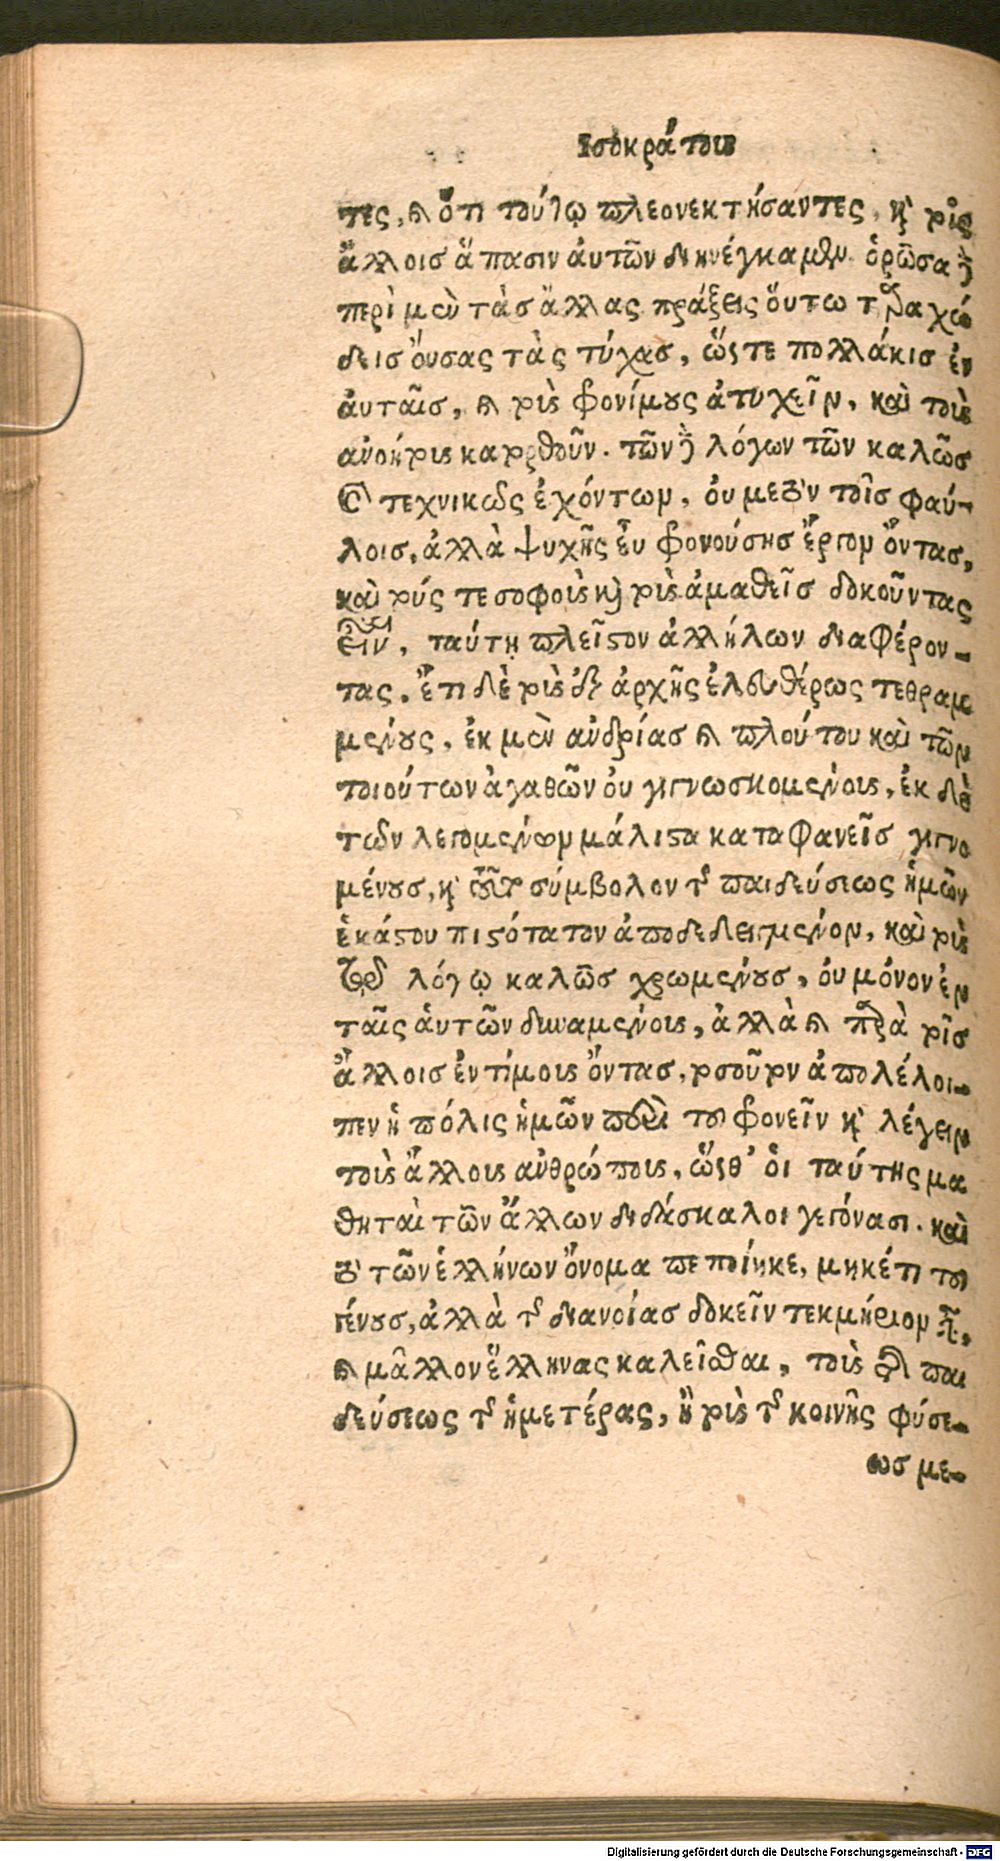 Ισοκράτους
τες, καὶ ὅτι τούτῳ πλεονεκτήσαντες, καὶ τοῖς
ἄλλοισ ἅπασιν ἀυτῶν διηνέγκαμεν. ὁρῶσα δὲ
περὶ μὲν τὰσ ἄλλας πράξεις ὅυτω ταραχώ
δεισ ὄυσας τὰς τύχασ, ὥςτε πολλάκισ ἐν
ἀυταῖσ, καὶ τοὺς φρονίμους ἀτυχεῖν, καὶ τοὺς
ἀνοήτους κατορθοῦν. τῶν δὲ λόγων τῶν καλῶσ
καὶ τεχνικῶς ἐχόντων, ὀυ μετὸν τοῖσ φαύ-
λοισ, ἀλλὰ ψυχῆς ἐῦ φρονούσησ ἔργον ὄντασ,
καὶ τούς τε σοφοὺς καὶ τοὺς ἀμαθεῖσ δοκοῦντας
εἶναι, ταύτῃ πλεῖστον ἀλλήλων διαφέρον-
τας. ἔτι δὲ τοὺς ἐξ ἀρχῆς ἐλευθέρως τεθραμ
μένους, ἐκ μὲν ἀνδρίασ καὶ πλούτου καὶ τῶν
τοιούτων ἀγαθῶν ὀυ γιγνωσκομένους, ἐκ δὲ
τῶν λεγομένων μάλιστα καταφανεῖσ γιγνο
μένουσ, καὶ τοῦτο σύμβολον τῆς παιδεύσεως ἡμῶν
ἑκάστου πιστότατον ἀποδεδειγμένον, καὶ τοὺς
τῷ λόγῳ καλῶσ χρωμένουσ, ὀυ μόνον ἐν
ταῖς ἁυτῶν δυναμένους, ἀλλὰ καὶ παρὰ τοῖσ
ἄλλοισ ἐντίμους ὄντασ, τοσοῦτον ἀπολέλοι-
πεν ἡ πόλις ἡμῶν περὶ τὸ φρονεῖν καὶ λέγειν
τοὺς ἄλλους ἀνθρώπους, ὥςθ' ὁι ταύτης μα
θηταὶ τῶν ἄλλων διδάσκαλοι γεγόνασι. καὶ
τὸ τῶν ἑλλήνων ὄνομα πεποίηκε, μηκέτι τοῦ
γένους, ἀλλὰ τῆς διανοίασ δοκεῖν τεκμήριον εἶναι,
καὶ μᾶλλον ἕλληνας καλεῖσθαι, τοὺς τῆς παι
δεύσεως τῆς ἡμετέρας, ἢ τοὺς τῆς κοινῆς φύσε-
ωσ με-
Digitalisierung gefördert durch die Deutsche Forschungsgemeinschaft - DFG